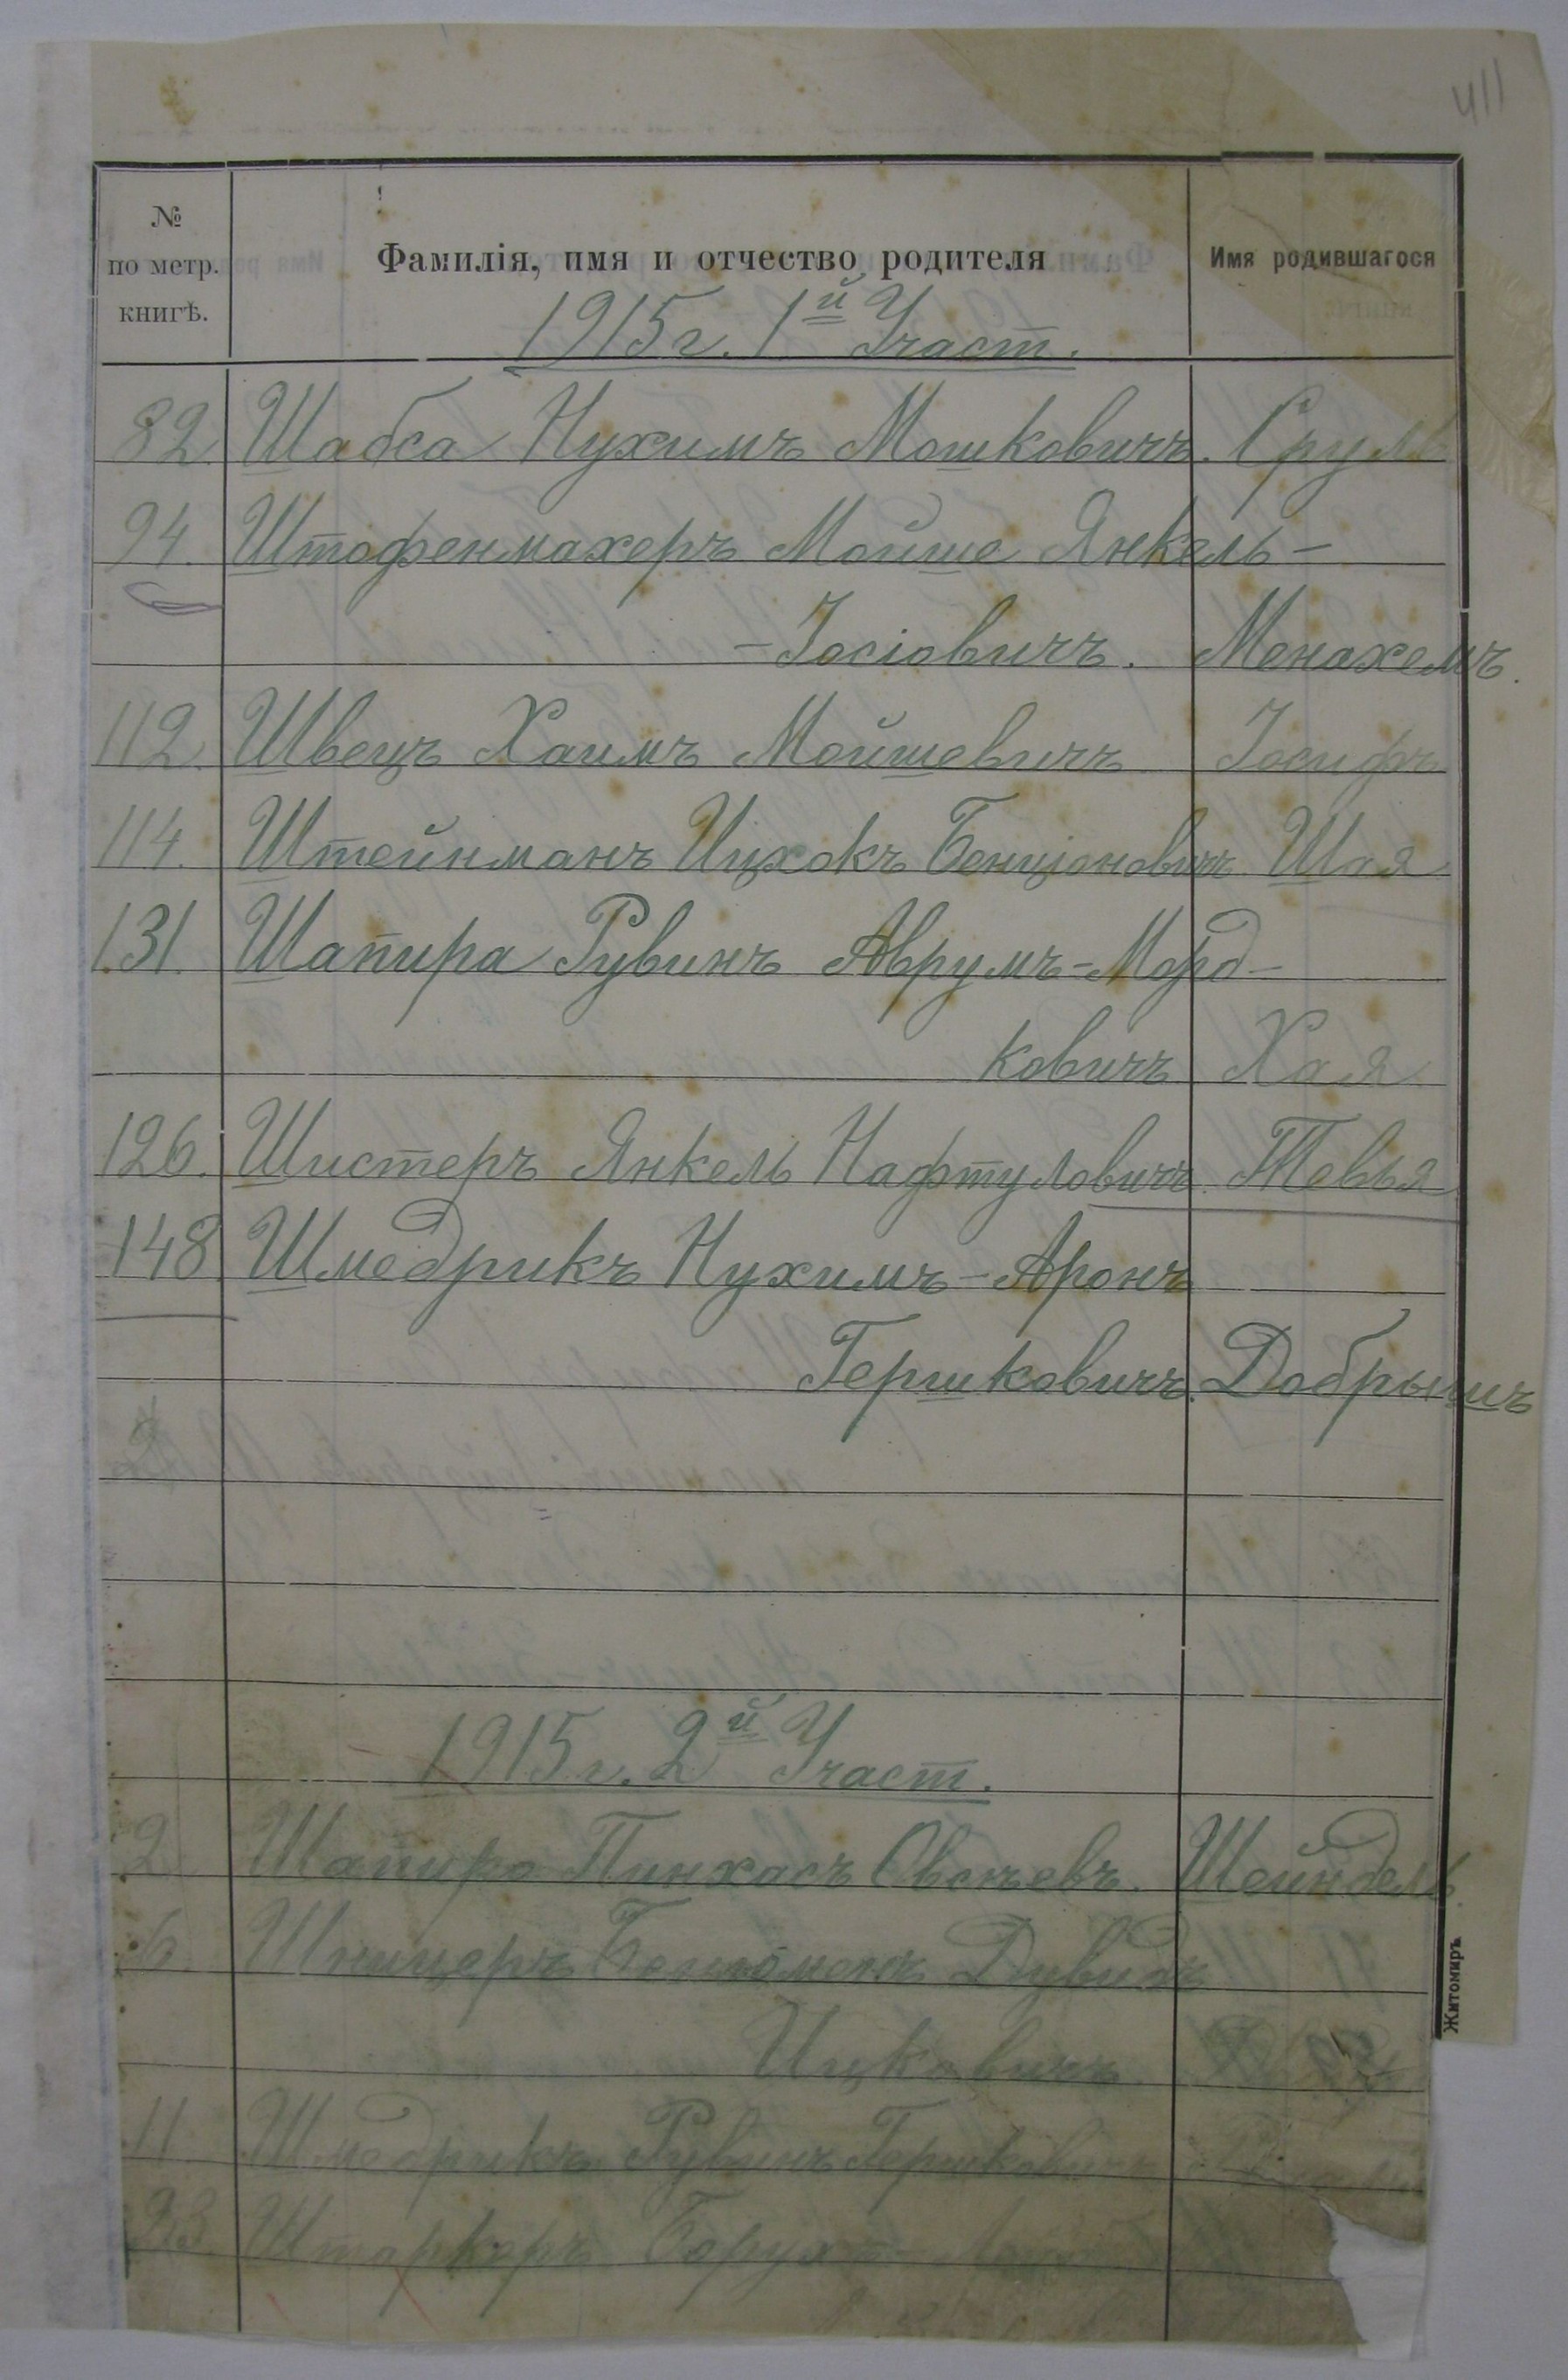 411
№ по метр. книгѣ.
Фамилія, имя и отчество родителя
Имя родившагося
1915 г. 1й Участ.
82 Шабса Нухимъ Мошковичъ. Сруль
94. Штофенмахеръ Мойше Янкель-
-Іосіовичъ. Менахемъ.
112. Швецъ Хаимъ Мойшевичъ Іосифъ
114. Штейнманъ Ицхокъ Бенціоновичъ Шая
131. Шапира Рувинъ Аврумъ-Морд-
ковичъ Хая
126. Шистеръ Янкель Нафтуловичъ Тевья
148 Шмедрикъ Нухимъ-Аронъ
Гершковичъ. Добрышъ
1915 г. 2й Участ.
2 Шапиро Пинхасъ Овсѣевъ. Шейндель
6. Шницеръ Дувидъ
Ицковичъ
11 Шмедрикъ Рувинъ Гершковичъ
23. Штаркеръ Борухъ-
Житомиръ